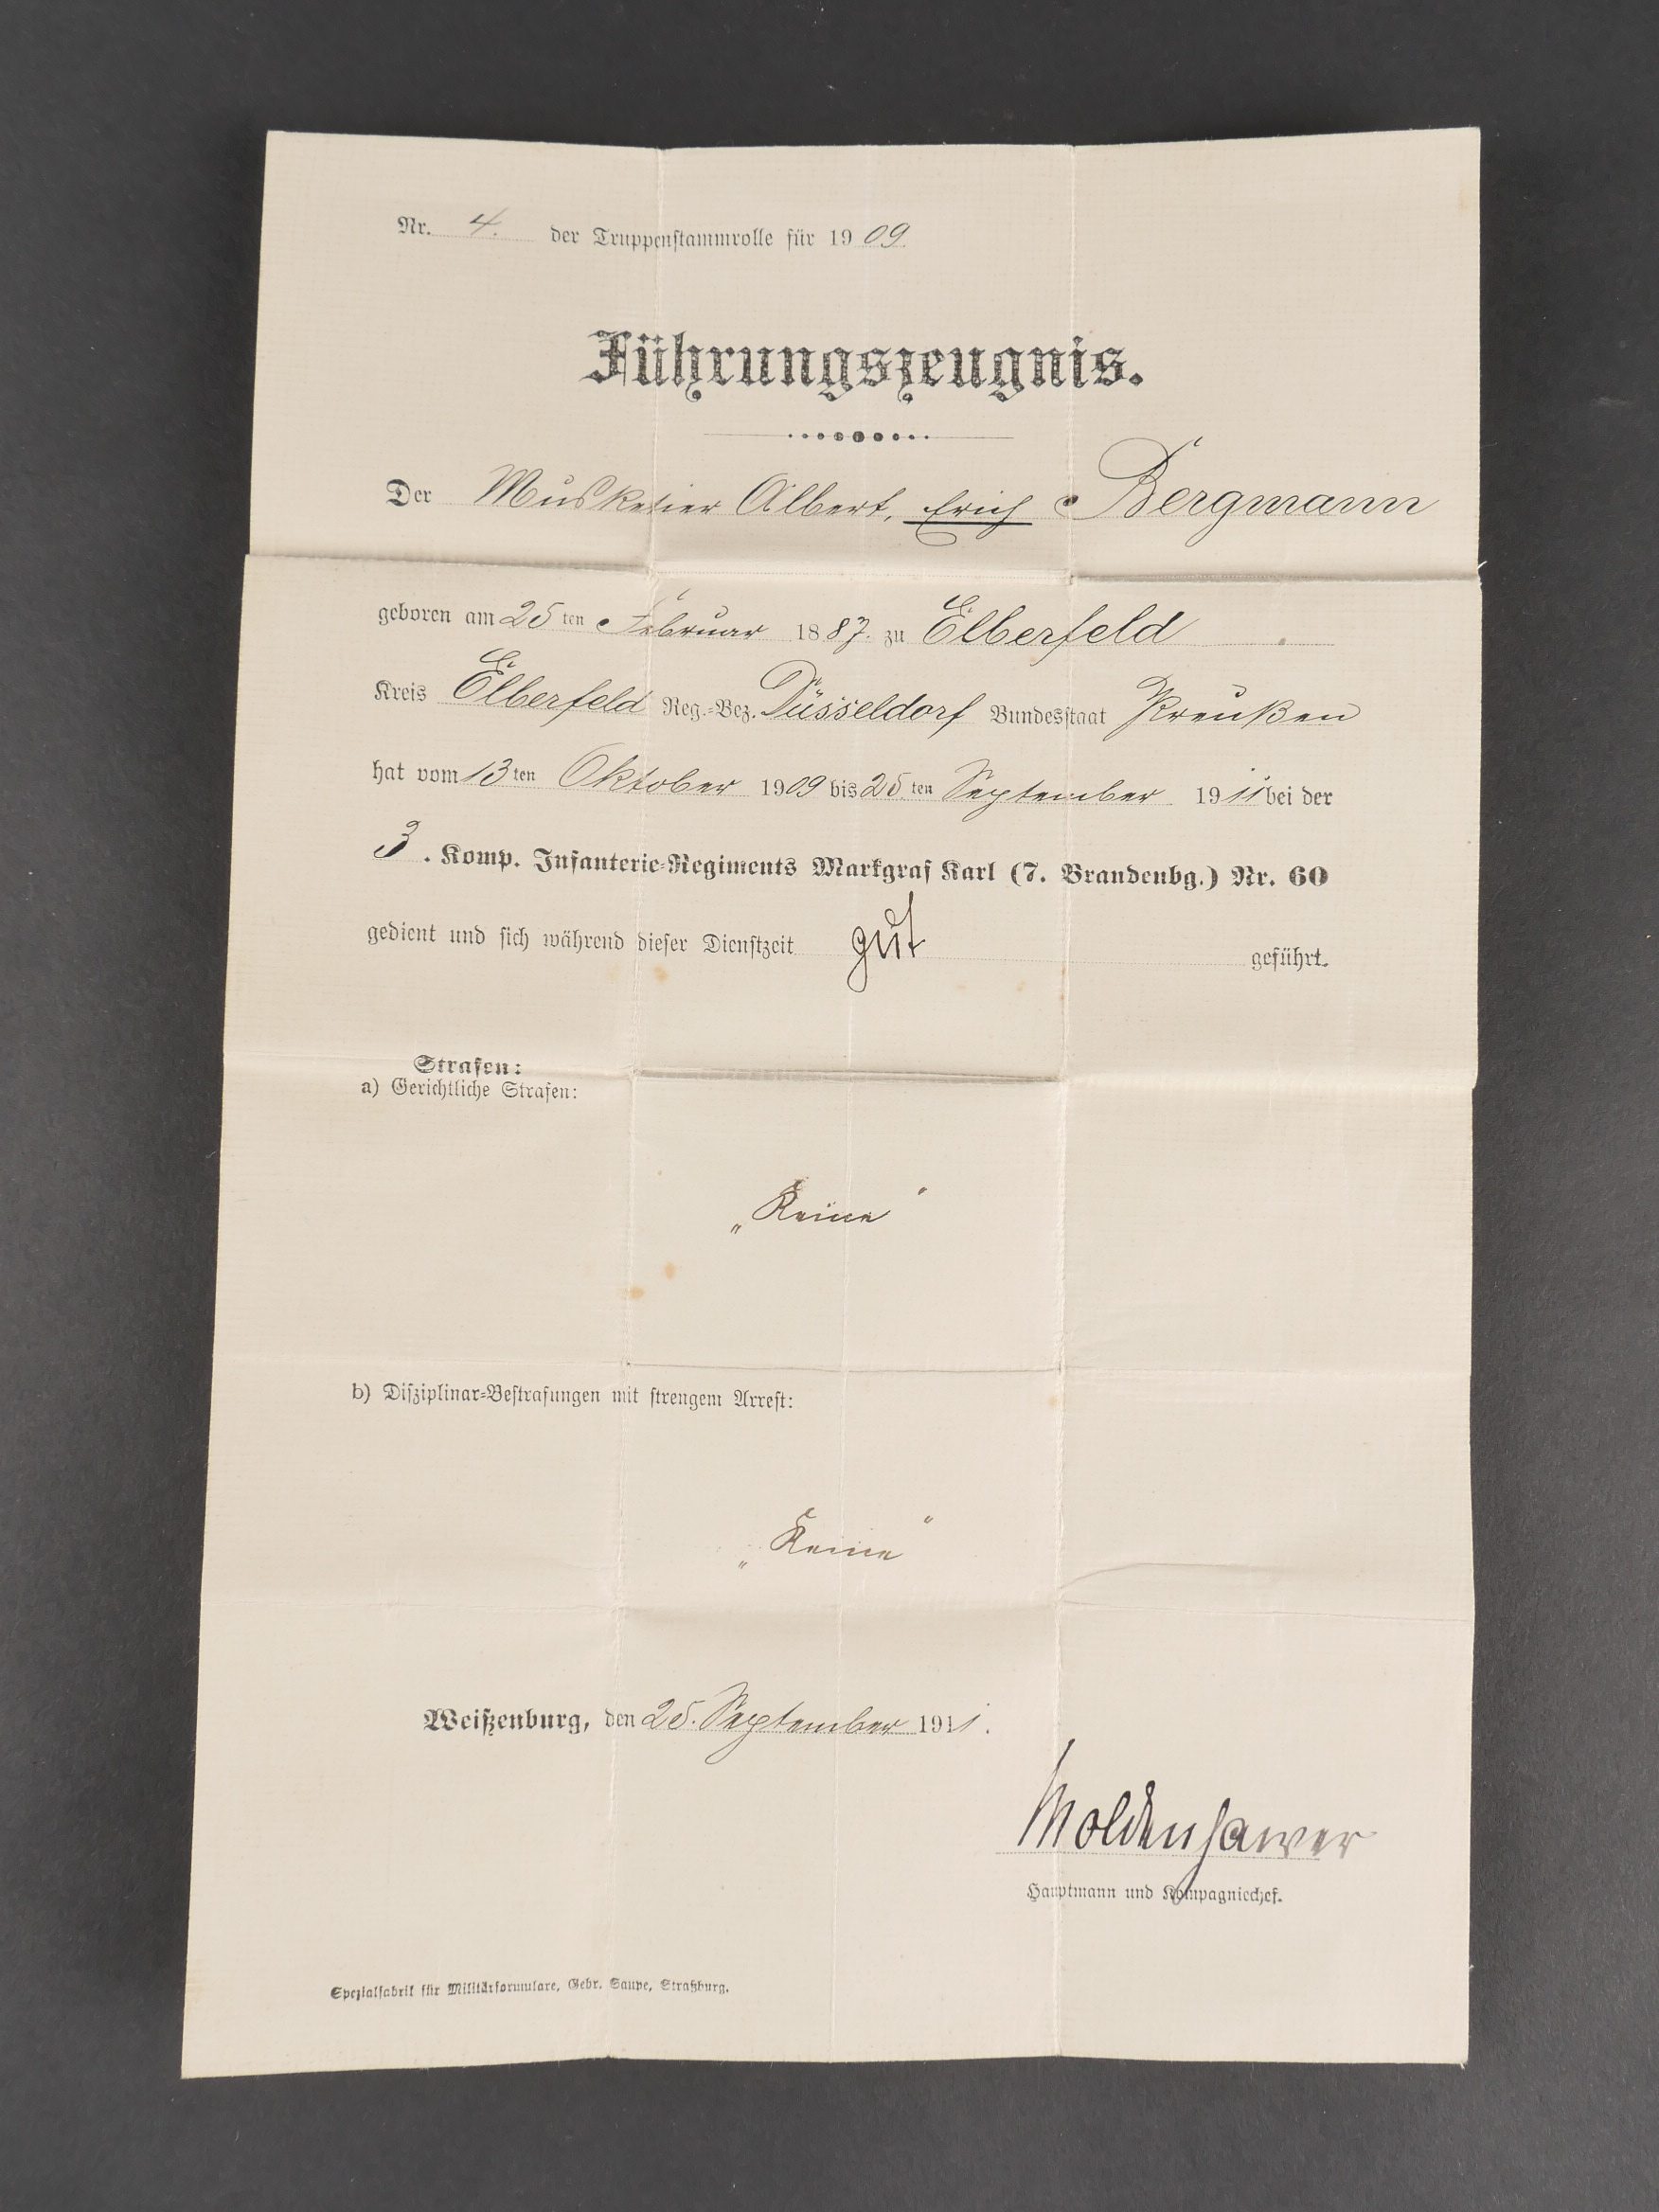 Nr. 4. der Truppenstammrolle für 1909
Führungszeugnis.
Der Musketier Albert, Erich Bergmann
geboren am 25ten Februar 1887. zu Elberfeld
Kreis Elberfeld Reg.-Bez. Düsseldorf Bundesstaat Preußen
hat vom 13ten Oktober 1909 bis 25ten September 1911 bei der
3. Komp. Infanterie-Regiments Markgraf Karl (7. Brandenbg.) Nr. 60
gedient und sich während dieser Dienstzeit gut geführt.
Strafen:
a) Gerichtliche Strafen:
„Keine“
b) Disziplinar-Bestrafungen mit strengem Arrest:
„Keine“
Weißenburg, den 25. September 1911.
Moldenhawer
Hauptmann und Kompagniechef.
Spezialfabrik für Militärformulare, Gebr. Saupe, Straßburg.